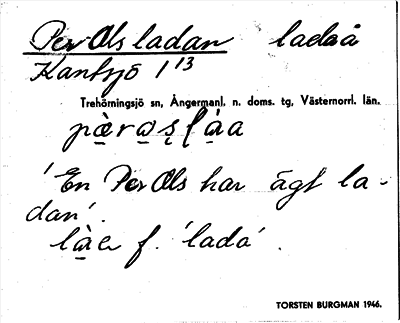 Per Ols ladan ladaå
Kantsjö 1 13
Trehörningsjö sn, Ångermanl. n. doms. tg, Västernorrl. län.
'En Per Ols har ägt la-
dan'.
f. 'lada'.
TORSTEN BURGMAN 1946.